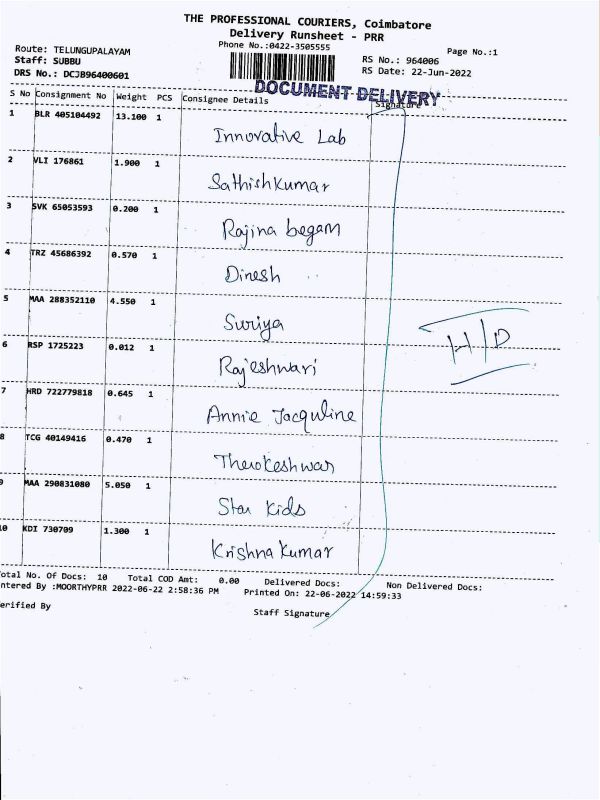 THE PROFESSIONAL COURIERS, Coimbatore
Delivery Runsheet - PRR
Phone No.:0422-3505555
Page No.:1
Route: TELUNGUPALAYAM
Staff: SUBBU
DRS No.: DCJB96400601
RS No.: 964006
RS Date: 22-Jun-2022
DOCUMENT DELIVERY
S No Consignment No Weight PCS Consignee Details Signature
1 BLR 405104492 13.100 1 Innovative Lab
2 VLI 176861 1.900 1 Sathishkumar
3 SVK 65053593 0.200 1 Rajina begam
4 TRZ 45686392 0.570 1 Dinesh
5 MAA 288352110 4.550 1 Suriya
H/D
6 RSP 1725223 0.012 1 Rajeshwari
7 HRD 722779818 0.645 1 Annie Jacquline
8 TCG 40149416 0.470 1 Tharokeshwar
9 MAA 290831080 5.050 1 Star Kids
10 KDI 730709 1.300 1 Krishna Kumar
otal No. Of Docs: 10 Total COD Amt: 0.00 Delivered Docs: Non Delivered Docs:
ntered By :MOORTHYPRR 2022-06-22 2:58:36 PM Printed On: 22-06-2022 14:59:33
erified By
Staff Signature